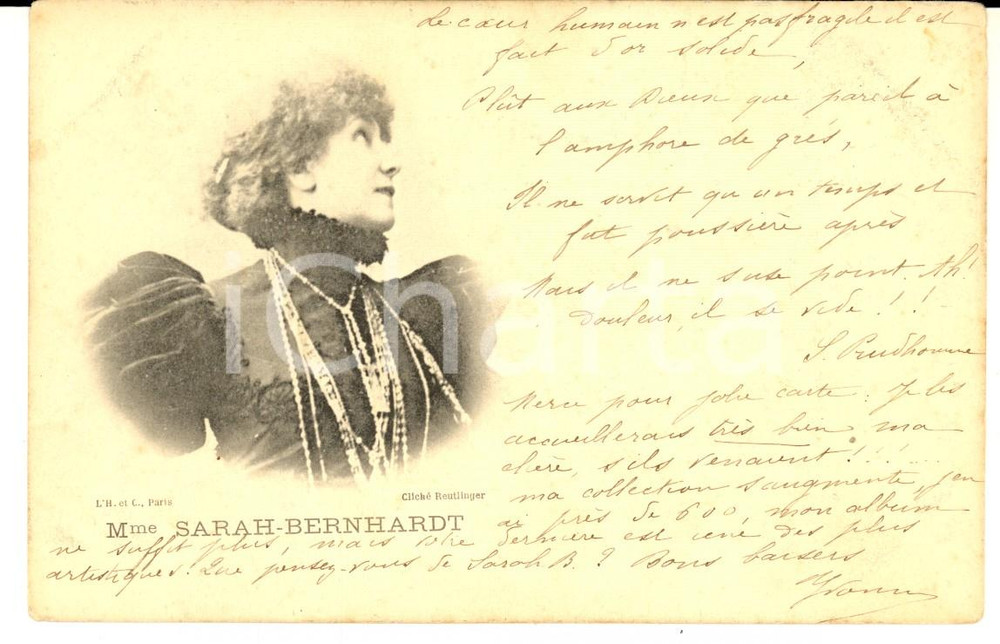 Le cœur humain n'est pas fragile il est
fait d'or solide,
Plût aux Dieux que pareil à
l'amphore de grès,
Il ne servit qu'un temps et
fut poussière après
Mais il ne s'use point. Ah!
douleur, il se vide!!
S. Prudhomme
Merci pour jolie carte. Je les
accueillerais très bien ma
chère, s'ils venaient!!!....
ma collection s'augmente, j'en
ai près de 600, mon album
ne suffit plus, mais votre dernière est une des plus
artistiques! Que pensez-vous de Sarah B.? Bons baisers
Yvonne
L'H. et C., Paris
Cliché Reutlinger
Mme SARAH-BERNHARDT
iCharta